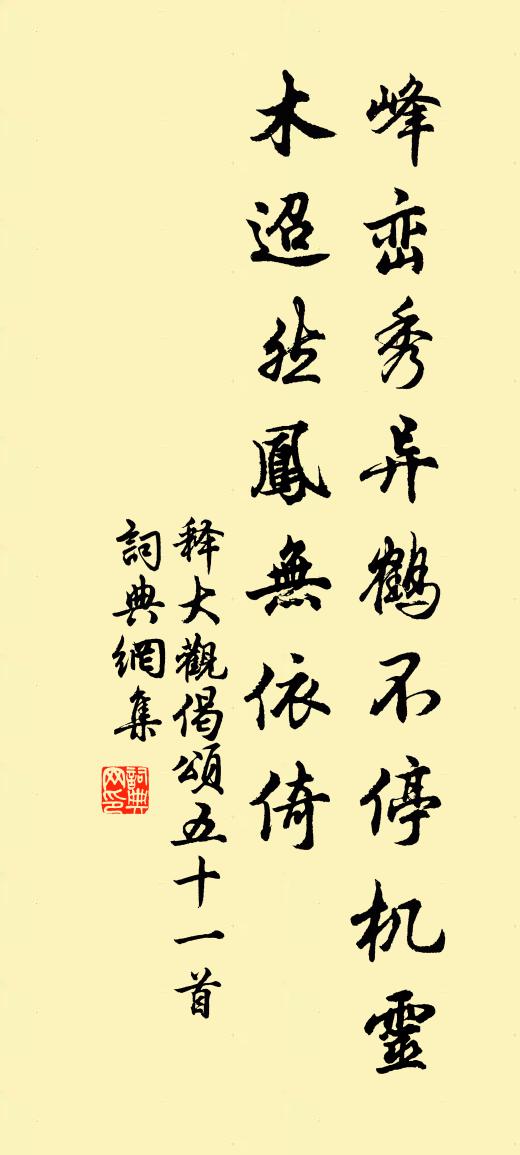 峰峦秀异鹤不停机靈
木迢然鳳無依倚
释大觀偈頌五十一首
詞典網集
詞典网印